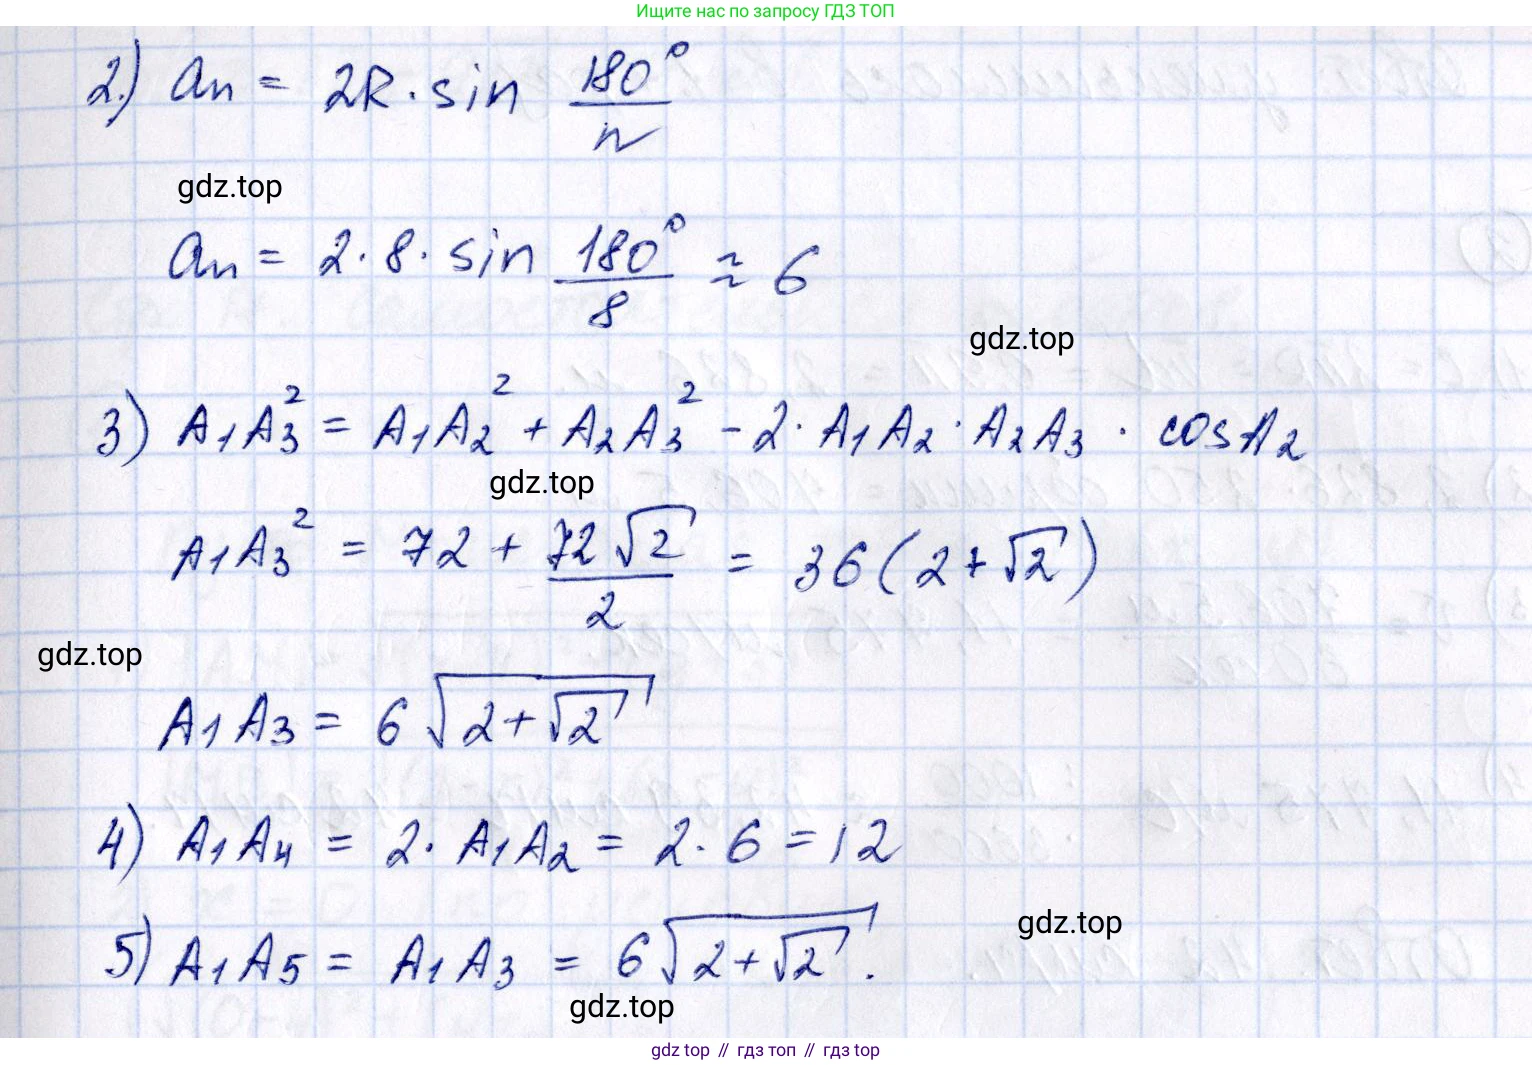 Ищите нас по запросу ГДЗ ТОП
2.) an = 2R · sin 180°/n
gdz.top
an = 2 · 8 · sin 180°/8 ≈ 6
gdz.top
3) A₁A₃² = A₁A₂² + A₂A₃² - 2 · A₁A₂ · A₂A₃ · cosA₂
gdz.top
A₁A₃² = 72 + 72√2/2 = 36(2+√2)
gdz.top
A₁A₃ = 6√(2+√2)
4) A₁A₄ = 2 · A₁A₂ = 2 · 6 = 12
gdz.top
5) A₁A₅ = A₁A₃ = 6√(2+√2).
gdz.top
gdz top // гдз топ // гдз top